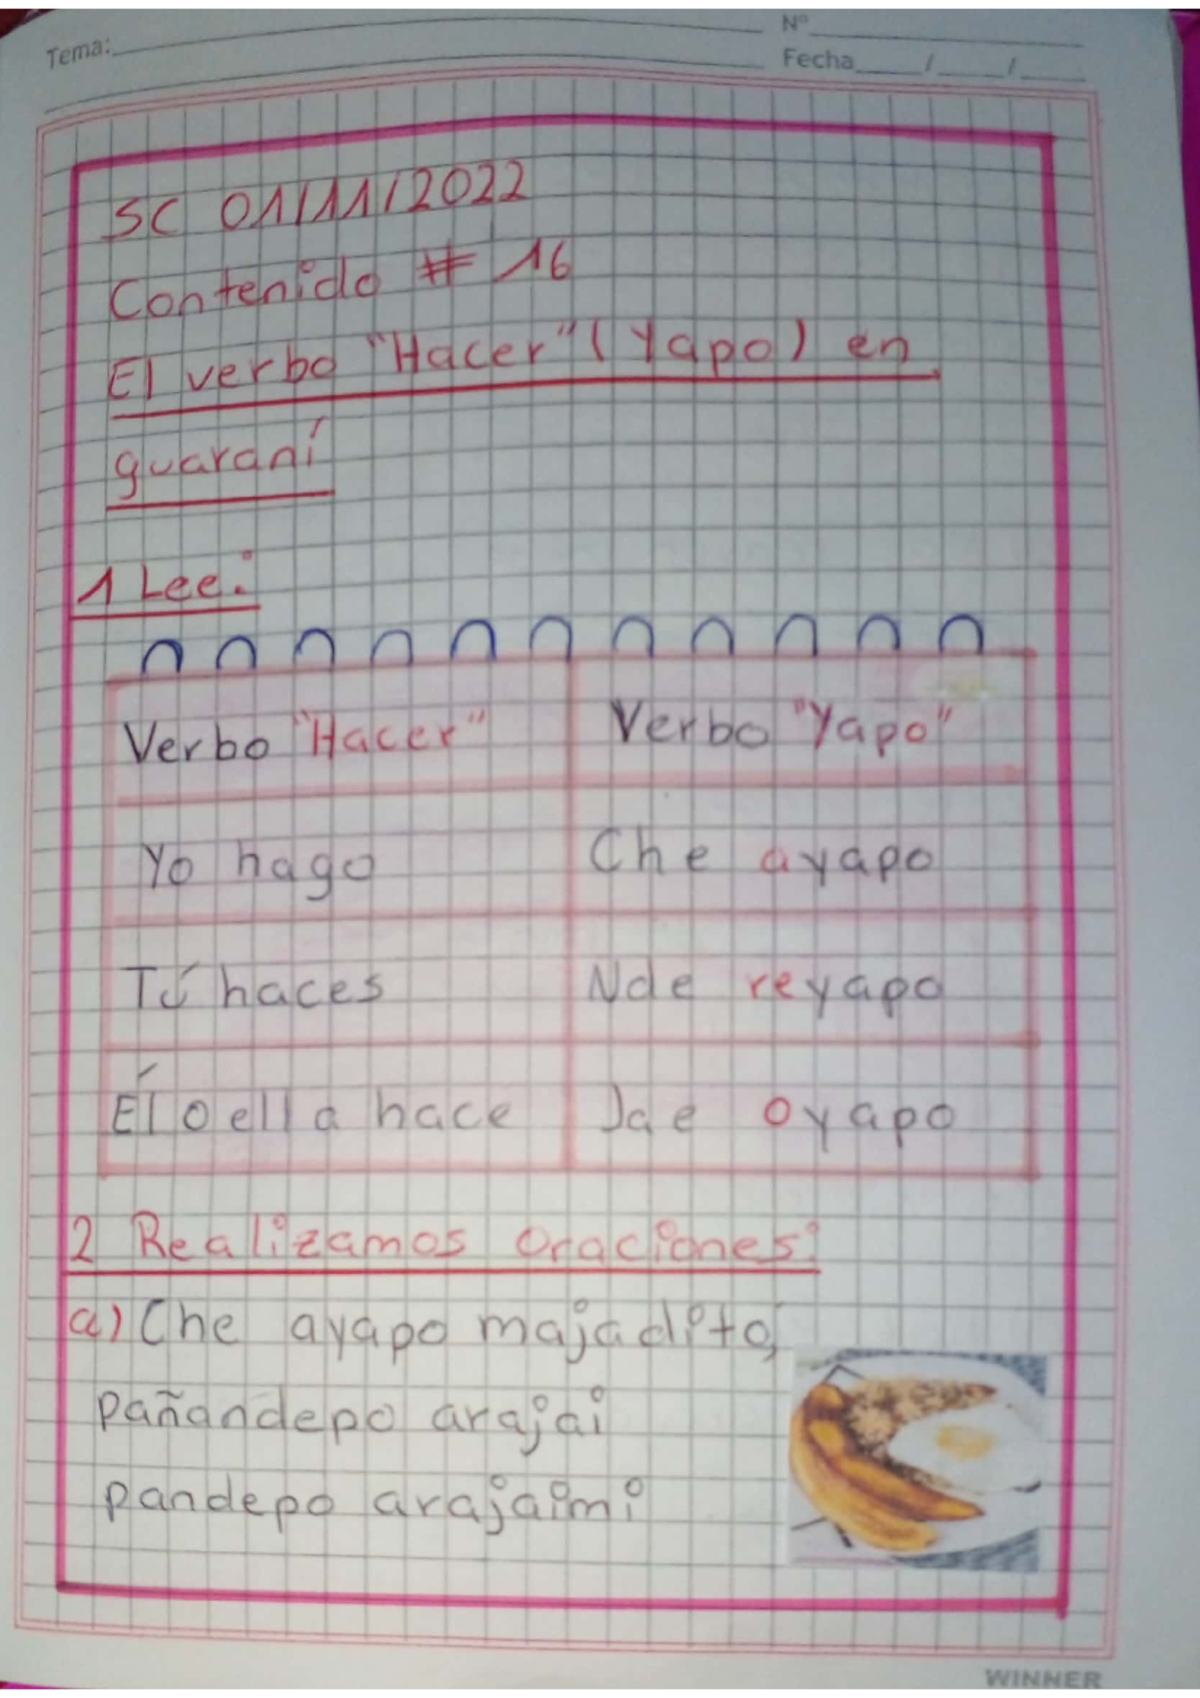 Tema:
N°
Fecha / /
SC 01/11/2022
Contenido # 16
El verbo "Hacer" (Yapo) en
guaraní
1 Lee:
Verbo "Hacer" Verbo "Yapo"
Yo hago Che ayapo
Tú haces Nde reyapo
Él o ella hace Jae oyapo
2 Realizamos oraciones:
a) Che ayapo majadito,
pañandepo arajai
pandepo arajaimi
WINNER